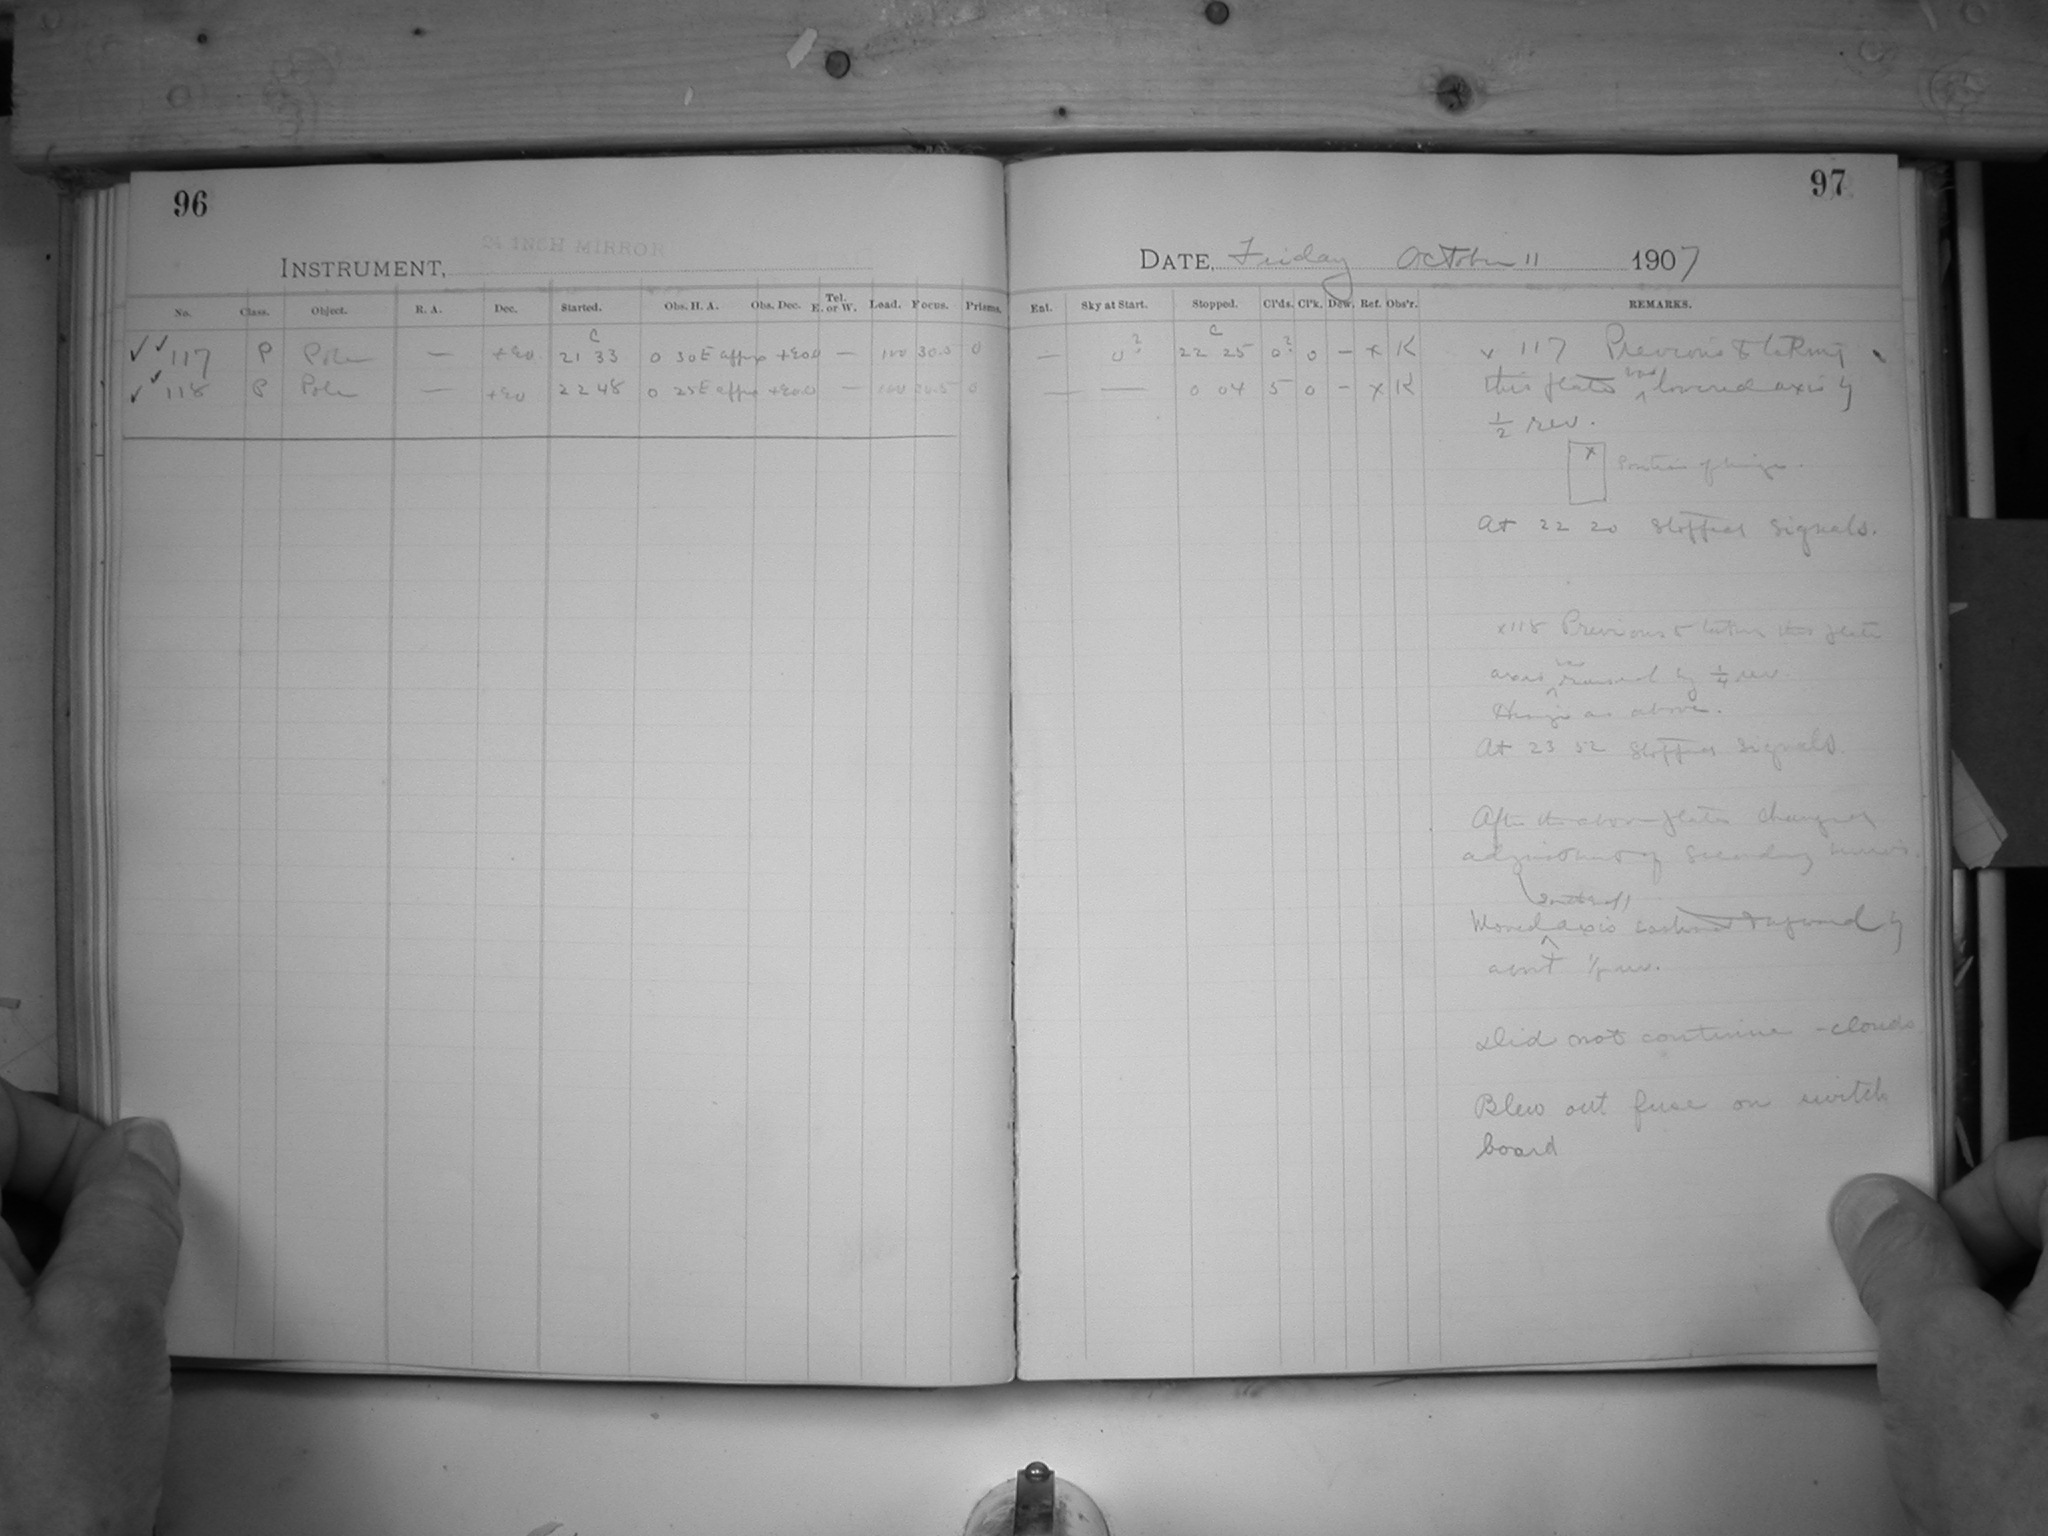 96
24 INCH MIRROR
INSTRUMENT,
No. Class. Object. R. A. Dec. Started. Obs. H. A. Obs. Dec. Tel. E. or W. Lead. Focus. Prisms.
C
✓ ✓ 117 P Pole — +90 21 33 0 30E approx +90.0 — 100 30.5 0
✓ ✓ 118 P Pole — +90 22 48 0 25E approx +90.0 — 100 30.5 0
97
DATE, Friday October 11 1907
Ent. Sky at Start. Stopped. Cl'ds. Cl'k. Dew. Ref. Obs'r. REMARKS.
C
— 0? 22 25 0? 0 — x K
— — 0 04 5 0 — x K
x 117 Previous to taking
this plate was lowered axis by
1/2 rev.
x Position of hinge.
At 22 20 stopped signals.
x118 Previous to taking this plate
axis was raised by 1/4 rev.
Hinge as above.
At 23 52 stopped signals.
After the above plates changed
adjustment of secondary mirror.
Moved axis by
about rev.
Did not continue - clouds
Blew out fuse on switch
board